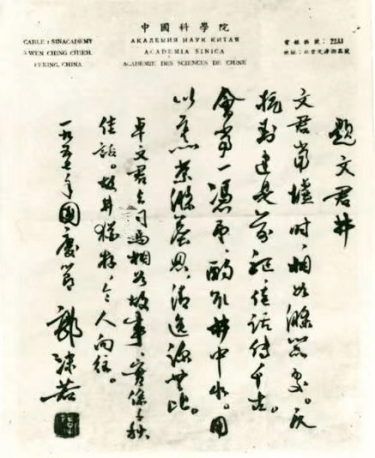 中國科學院
АКАДЕМИЯ НАУК КИТАЯ
ACADEMIA SINICA
ACADEMIE DES SCIENCES DE CHINE
CABLE: SINACADEMY
3 WEN CHING CHIEH,
PEKING, CHINA
電報掛號: 2233
地址:北京文津街三號
題文君井
文君當壚時、相如滌器處。反
抗封建是前驅、佳話傳千古。
會當一憑弔、酌取井中水。用
以烹茶滌塵思、清逸涼無比。
卓文君与司馬相如故事、實係千秋
佳話。故井猶存、令人向往。
一九五七年國慶節 郭沫若